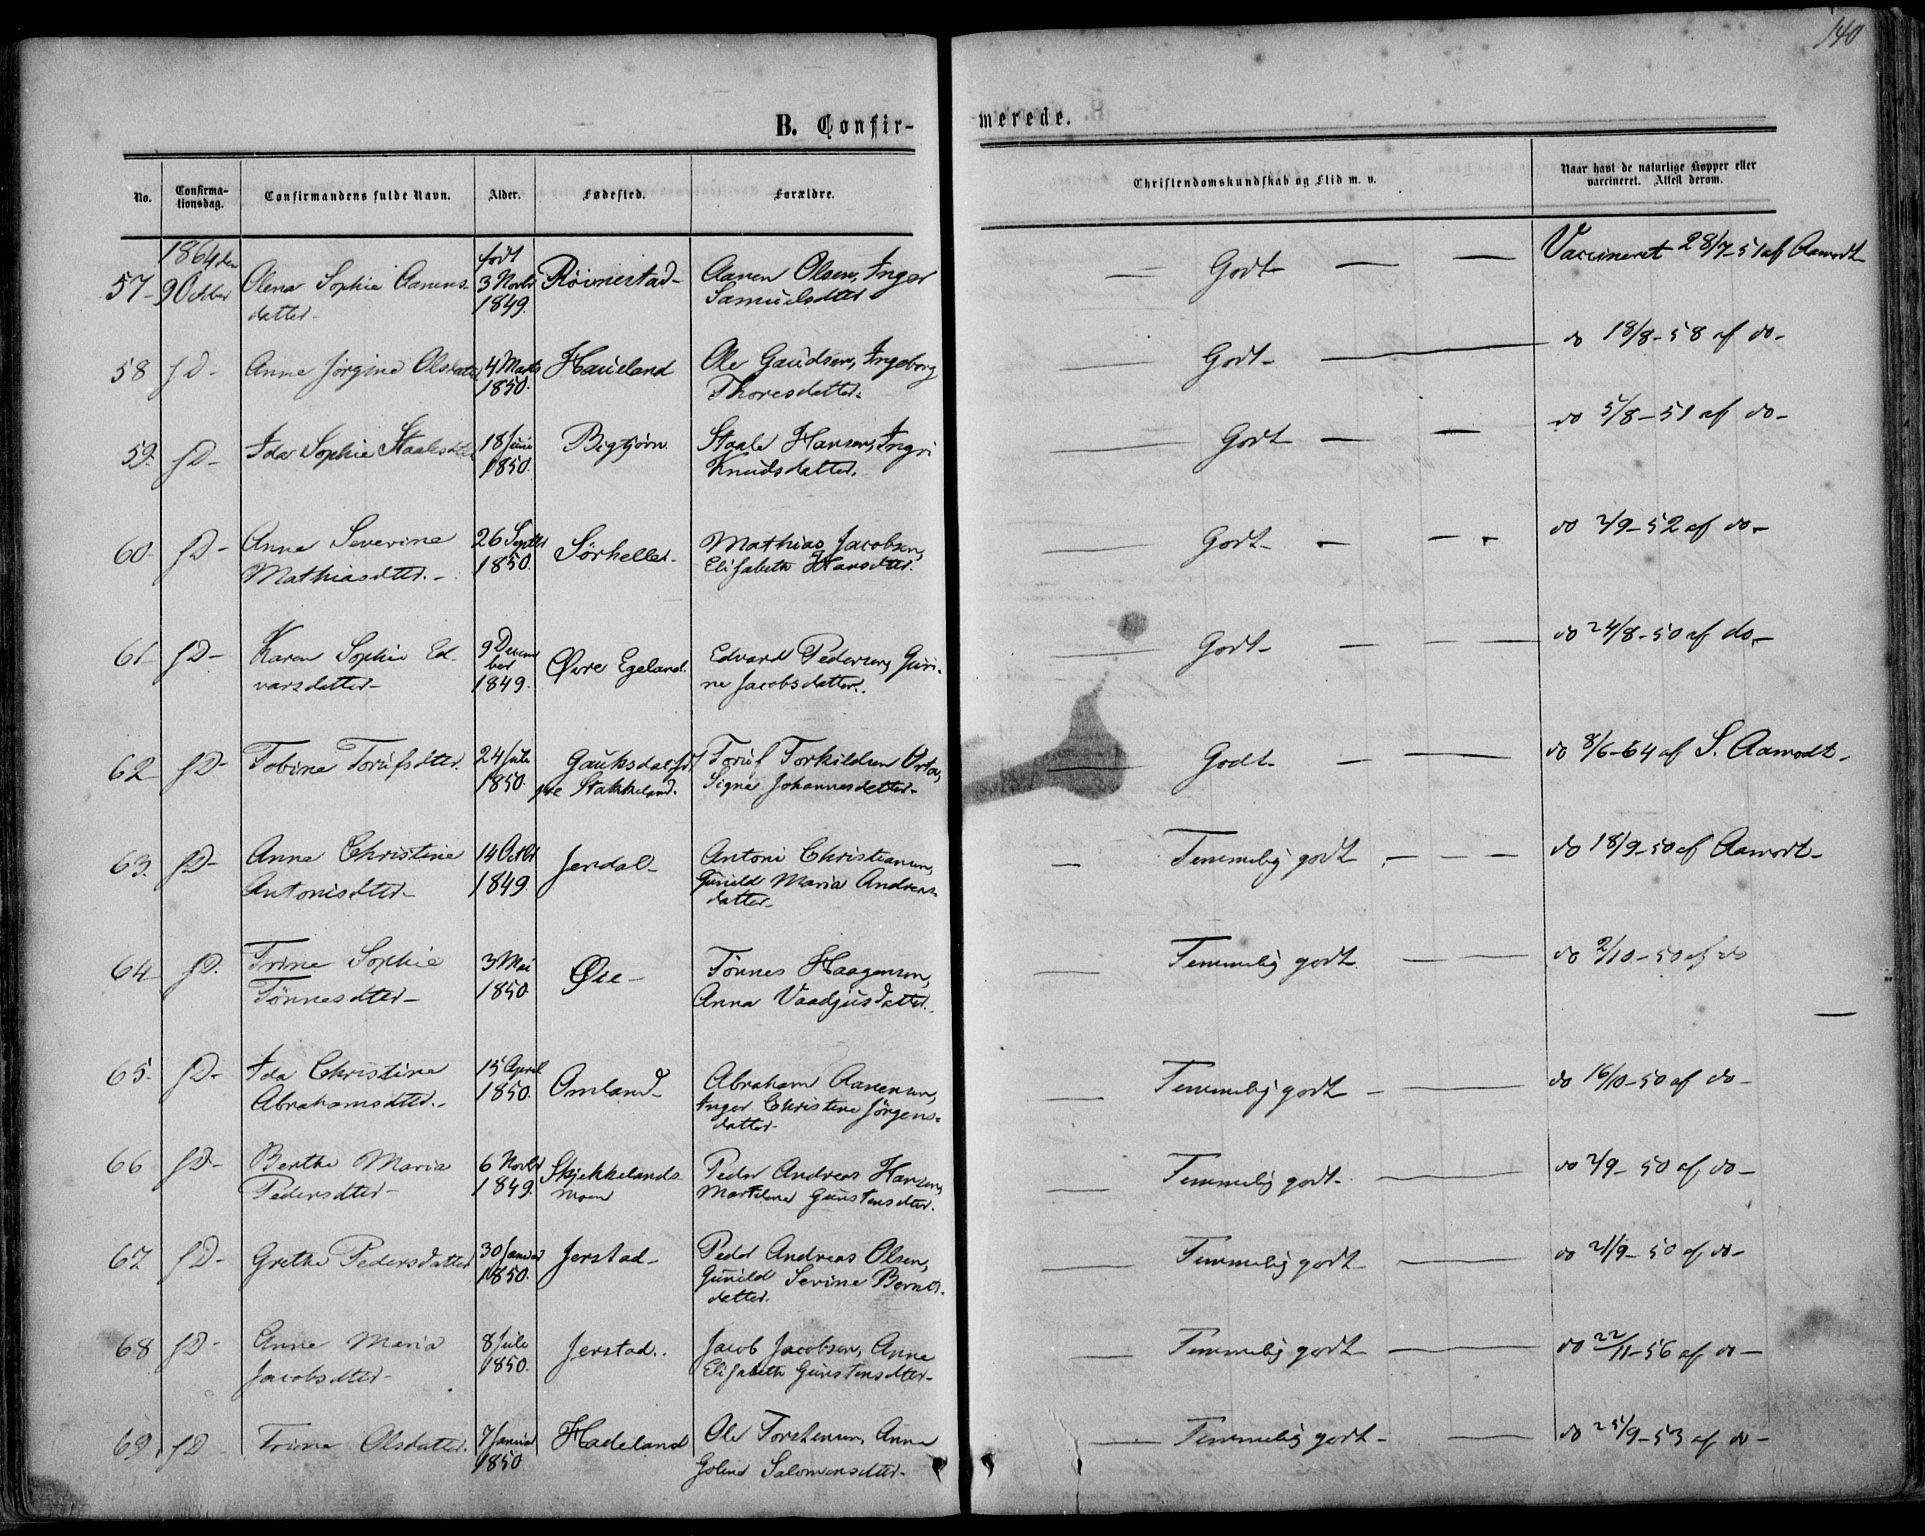 140
B. Confir-
merede.
No.
Confirma-
tionsdag.
Confirmandens fulde Navn.
Alder.
Fødested.
Forældre.
Christendomskundskab og Flid m. v.
Naar havt de naturlige Kopper eller
vaccineret. Attest derom.
1864 den født
57- 9 Octbr Olena Sophie Aanens- 3 Novbr Røinestad- Aanen Olsen, Inger — Godt — — Vaccineret 28/7-51 af Aamodt
datter- 1849. Samuelsdtter
58 sD- Anne Jørgine Olsdatter 4 Marts Haueland Ole Gaudsen, Ingeborg — Godt- — do 18/8-58 af do-
1850. Thoresdatter.
59. sD- Ida Sophie Staalesdtter 18 Juni Bigtjørn. Staale Hansen, Ingri — Godt — — do 5/8-51 af do-
1850. Knudsdatter.
60- sD- Anne Severine 26 Septbr Sørheller- Mathias Jacobsen, — Godt- - - - do 2/9-52 af do-
Mathiasdtter.- 1850. Elisabeth Hansdtter.
61- sD- Karen Sophie Ed- 9 Decem Øvre Egeland. Edvard Pedersen, Guri- — Godt- — — — do 24/8-50 af do-
varsdatter- ber 1849. ne Jacobsdatter.
62- sD- Tobine Torufsdtter. 24 Juli Gauksdal, Toruf Torkildsen — Godt- — — do 8/6-64 af S. Aamodt-
1850. Stakkeland. Signe Johannesdatter-
63. sD- Anne Christine 14 Octbr Jerdal- Antoni Christiansen, — Temmelig godt — — — do 18/9-50 af Aamodt-
Antonisdtter- 1849. Gunild Maria Andreas-
datter-
64 sD. Trine Sophie 3 Mai Øie- Tønnes Haagensen, — Temmelig godt. — — do 2/10-50 af do
Tønnesdtter- 1850 Anna Vaadjusdatter.
65. sD- Ida Christine 15 April Omland- Abraham Aanensen, — Temmelig godt - — do 16/10-50 af do-
Abrahamsdtter.- 1850. Inger Christine Jørgens-
datter-
66 sD- Berthe Maria 6 Novbr Skjekkelands- Peder Andreas Hansen, — Temmelig godt- — do 2/9-50 af do-
Pedersdtter- 1849. moen Martilene Gunstensdtter.
67 sD- Grethe Pedersdatter 30 Januar Jerstad- Peder Andreas Olsen, — Temmelig godt — — do 21/9-50 af do-
1850. Gunild Sevine Bernts-
datter.
68 sD- Anne Maria 8 Juli Jerstad.. Jacob Jacobsen, Anne — Temmelig godt — do 22/11-56 af do-
Jacobsdtter- 1850. Elisabeth Gunstensdtter-
69. sD- Trine Olsdatter. 7 Januar Hadeland Ole Torstensen, Anne — Temmelig godt- — do 25/9-53 af do-
1850 Salomonsdtter-